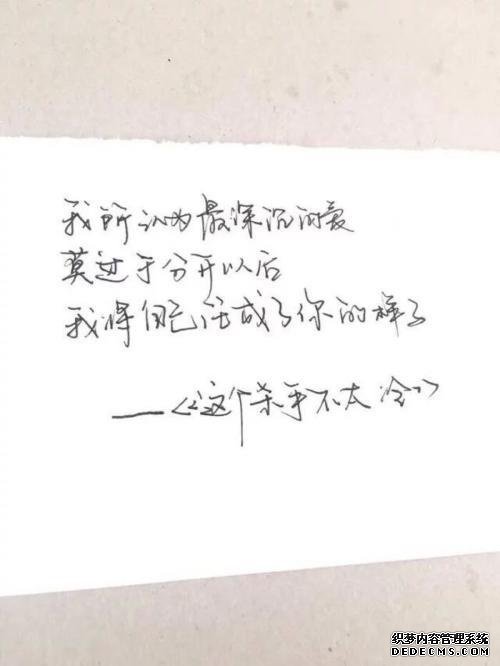 我所认为最深沉的爱
莫过于分开以后
我将自己活成了你的样子
——《这个杀手不太冷》
织梦内容管理系统
DEDECMS.COM